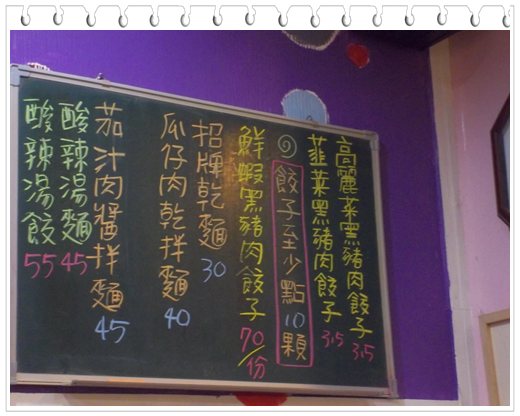 高麗菜黑豬肉餃子 3.5
韮菜黑豬肉餃子 3.5
餃子至少點10顆
鮮蝦黑豬肉餃子 70/份
招牌乾麵 30
瓜仔肉乾拌麵 40
茄汁肉醬拌麵 45
酸辣湯麵 45
酸辣湯餃 55